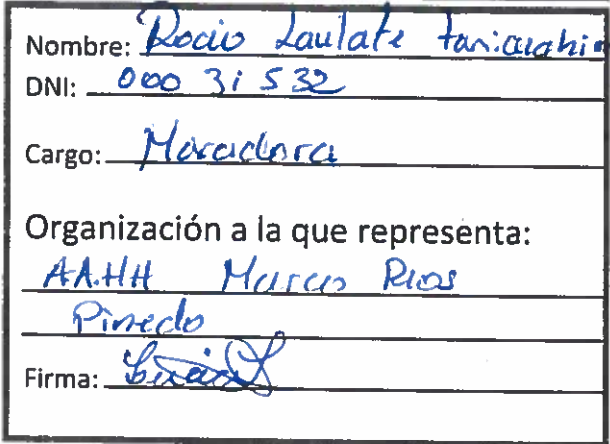 Nombre: Rocio Laulate Tanicuahin
DNI: 000 31 532
Cargo: Moradora
Organización a la que representa:
AA.HH Marcos Rios
Pinedo
Firma: